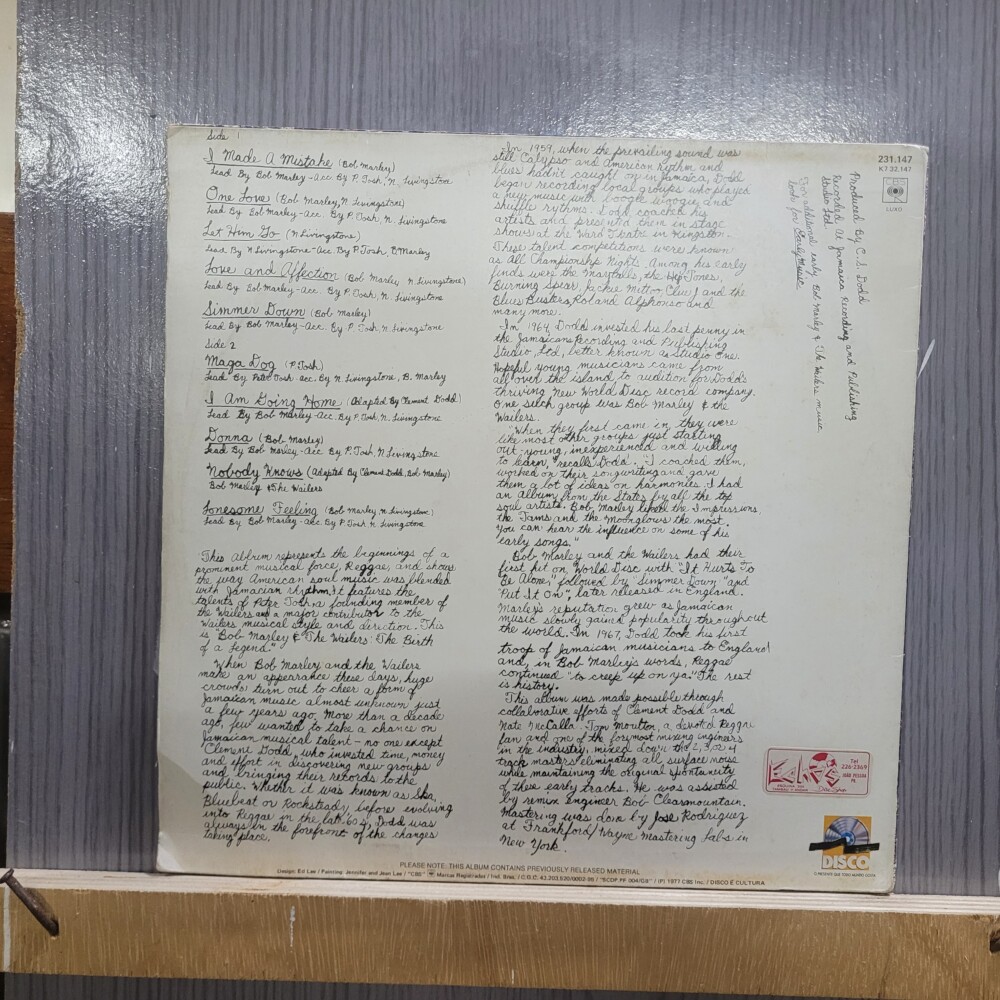 Side 1
I Made A Mistake (Bob Marley)
Lead By Bob Marley-Acc. By P. Tosh, N. Livingstone
One Love (Bob Marley, N Livingstone)
Lead By Bob Marley-Acc. By P. Tosh, N. Livingstone
Let Him Go (N Livingstone)
Lead By N Livingstone-Acc. By P. Tosh, B Marley
Love and Affection (Bob Marley, N Livingstone)
Lead By Bob Marley-Acc. By P. Tosh, N. Livingstone
Simmer Down (Bob Marley)
Lead By Bob Marley-Acc. By P. Tosh, N. Livingstone
Side 2
Maga Dog (P. Tosh)
Lead By Peter Tosh-acc. By N. Livingstone, B. Marley
I Am Going Home (Adapted By Clement Dodd)
Lead By Bob Marley-Acc By P. Tosh, N. Livingstone
Donna (Bob Marley)
Lead By Bob Marley-Acc. By P. Tosh, N Livingstone
Nobody Knows (Adapted By Clement Dodd, Bob Marley)
Bob Marley & The Wailers
Lonesome Feeling (Bob Marley, N. Livingstone)
Lead By Bob Marley-Acc. By P. Tosh N. Livingstone
This album represents the beginnings of a
prominent musical force, Reggae, and shows
the way American soul music was blended
with Jamacian rhythm. It features the
talents of Peter Tosh, a founding member of
the Wailers and a major contributor to the
Wailers musical style and direction. This
is "Bob Marley & The Wailers: The Birth
of a Legend"
When Bob Marley and the Wailers
make an appearance these days, huge
crowds turn out to cheer a form of
Jamaican music almost unknown just
a few years ago. More than a decade
ago, few wanted to take a chance on
Jamaican musical talent - no one except
Clement Dodd, who invested time, money
and effort in discovering new groups
and bringing their records to the
public. Whether it was known as Ska,
Bluebeat or Rocksteady before evolving
into Reggae in the late 60's, Dodd was
always in the forefront of the changes
taking place.
In 1959, when the prevailing sound was
still Calypso and American rythm and
blues hadn't caught on in Jamaica, Dodd
began recording local groups who played
a new music with boogie woogie and
shuffle rythms. Dodd coached his
artists and presented them in stage
shows at the Ward Theatr in Kingston.
These talent competitions were known
as All Championship Nights. Among his early
finds were the Maytalls, the Hep Tones,
Burning Spear, Jackie Mittoo, Clue J and the
Blues Busters, Roland Alphonso and
many more.
In 1964, Dodd invested his last penny in
the Jamaican Recording and Publishing
Studio, Ltd., better known as Studio One.
Hopeful young musicians came from
all over the island to audition for Dodd's
thriving New World Disc record company.
One such group was Bob Marley & the
Wailers.
"When they first came in, they were
like most other groups just starting
out-young, inexperienced and willing
to learn," recalls Dodd. "I coached them,
worked on their songwriting and gave
them a lot of ideas on harmonies. I had
an album from the States by all the top
soul artists. Bob Marley liked the Impressions,
the Tams and the Moonglows the most.
You can hear the influence on some of his
early songs."
Bob Marley and the Wailers had their
first hit on World Disc with "It Hurts To
Be Alone," followed by "Simmer Down," and
"Put It On", later released in England.
Marley's reputation grew as Jamaican
music slowly gained popularity throughout
the world. In 1967, Dodd took his first
troop of Jamaican musicians to England
and, in Bob Marley's words, Reggae
continued "to creep up on ya." The rest
is history.
This album was made possible through
collaborative efforts of Clement Dodd and
Nate McCalla. Tom Moulton, a devoted Reggae
fan and one of the foremost mixing engineers
in the industry, mixed down the 2, 3, or 4
track masters eliminating all surface noise
while maintaining the original spontaneity
of these early tracks. He was assisted
by remix engineer Bob Clearmountain.
Mastering was done by José Rodriguez
at Frankford/Wayne Mastering Labs in
New York.
231.147
K7 32.147
CBS
LUXO
Produced By C.S. Dodd
Recorded At Jamaica Recording and Publishing
Studio Ltd.
For additional early Bob Marley & The Wailers music,
look for Early Music
Tel
226-2369
DISCO
PLEASE NOTE: THIS ALBUM CONTAINS PREVIOUSLY RELEASED MATERIAL
Design: Ed Lee / Painting: Jennifer and Jean Lee / "CBS" Marcas Registradas / Ind. Bras. / C.G.C. 43.203.520/0002-36 / "SCDP PF 004/GB" / (P) 1977 CBS Inc. / DISCO É CULTURA